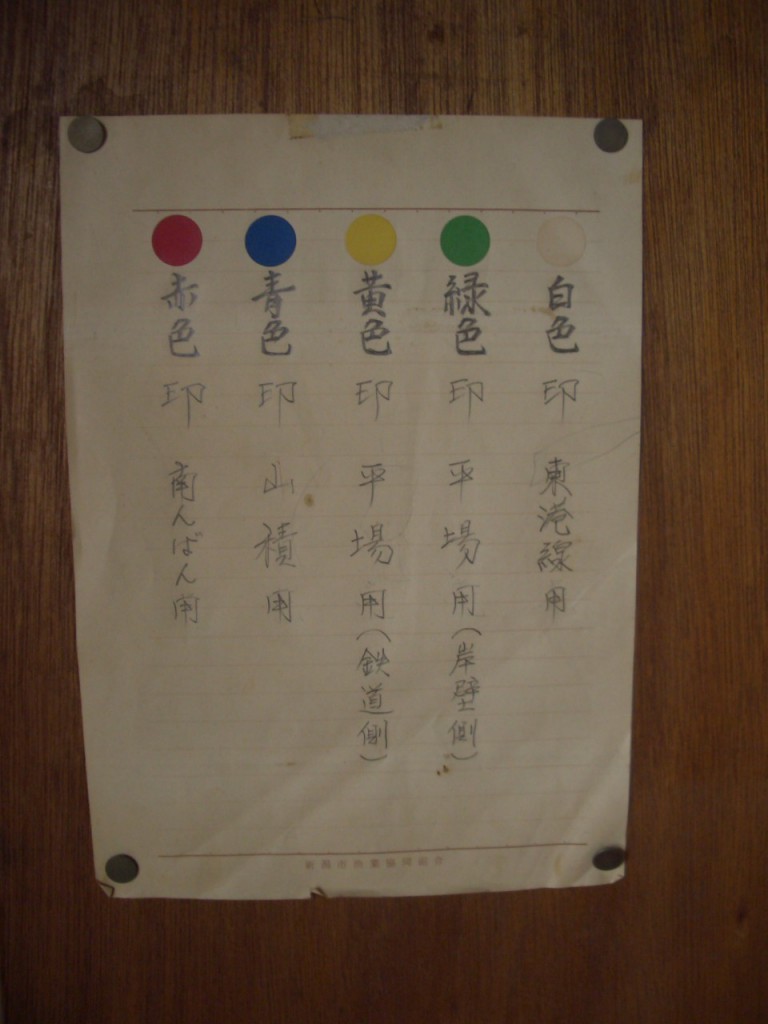 白色印 東港線用
緑色印 平場用(岸壁側)
黄色印 平場用(鉄道側)
青色印 山積用
赤色印 南んばん用